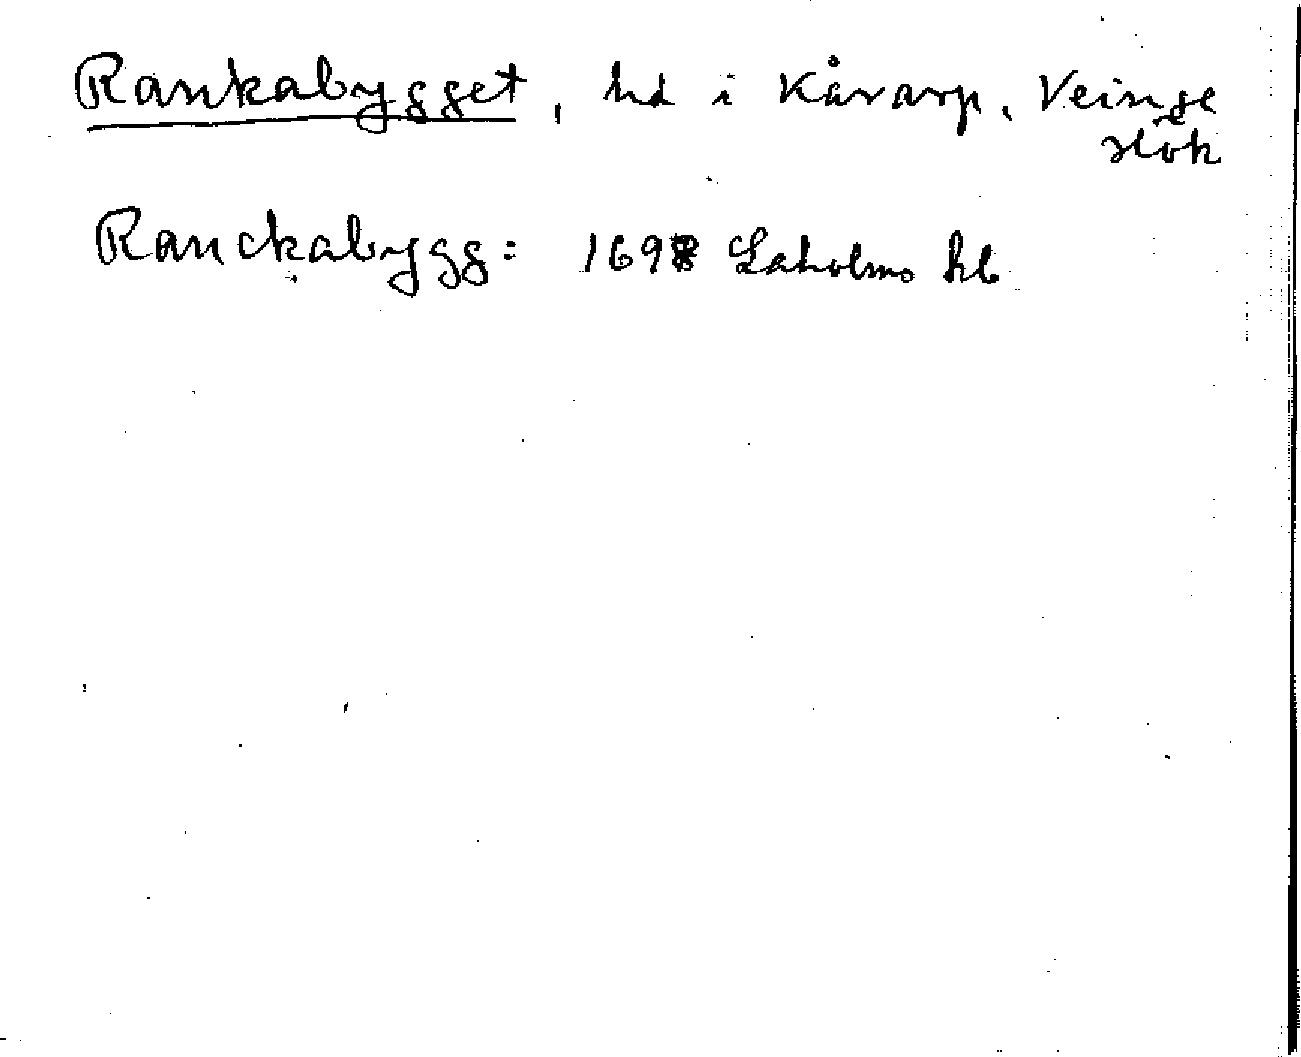 Rankabygget, hd i Kårarp, Veinge
Hök
Ranckabygg: 1698 Laholms hb